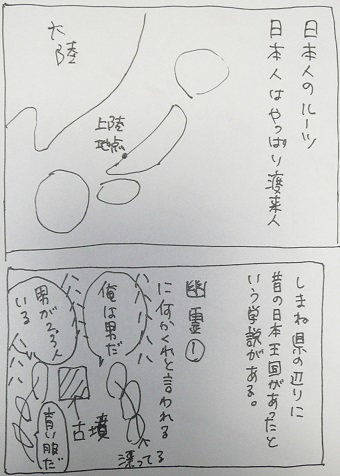 日本人のルーツ
日本人はやっぱり渡来人
大陸
上陸
地点
しまね県の辺りに
昔の日本王国があったと
いう学説がある。
幽霊①
に何かくれと言われる
俺は男だ
男が2、3人
いる
古墳
青い服だ
漂ってる